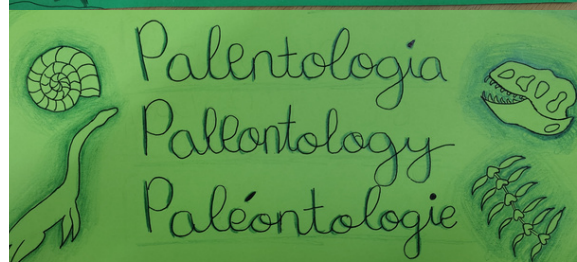 Palentología
Paleontology
Paléontologie